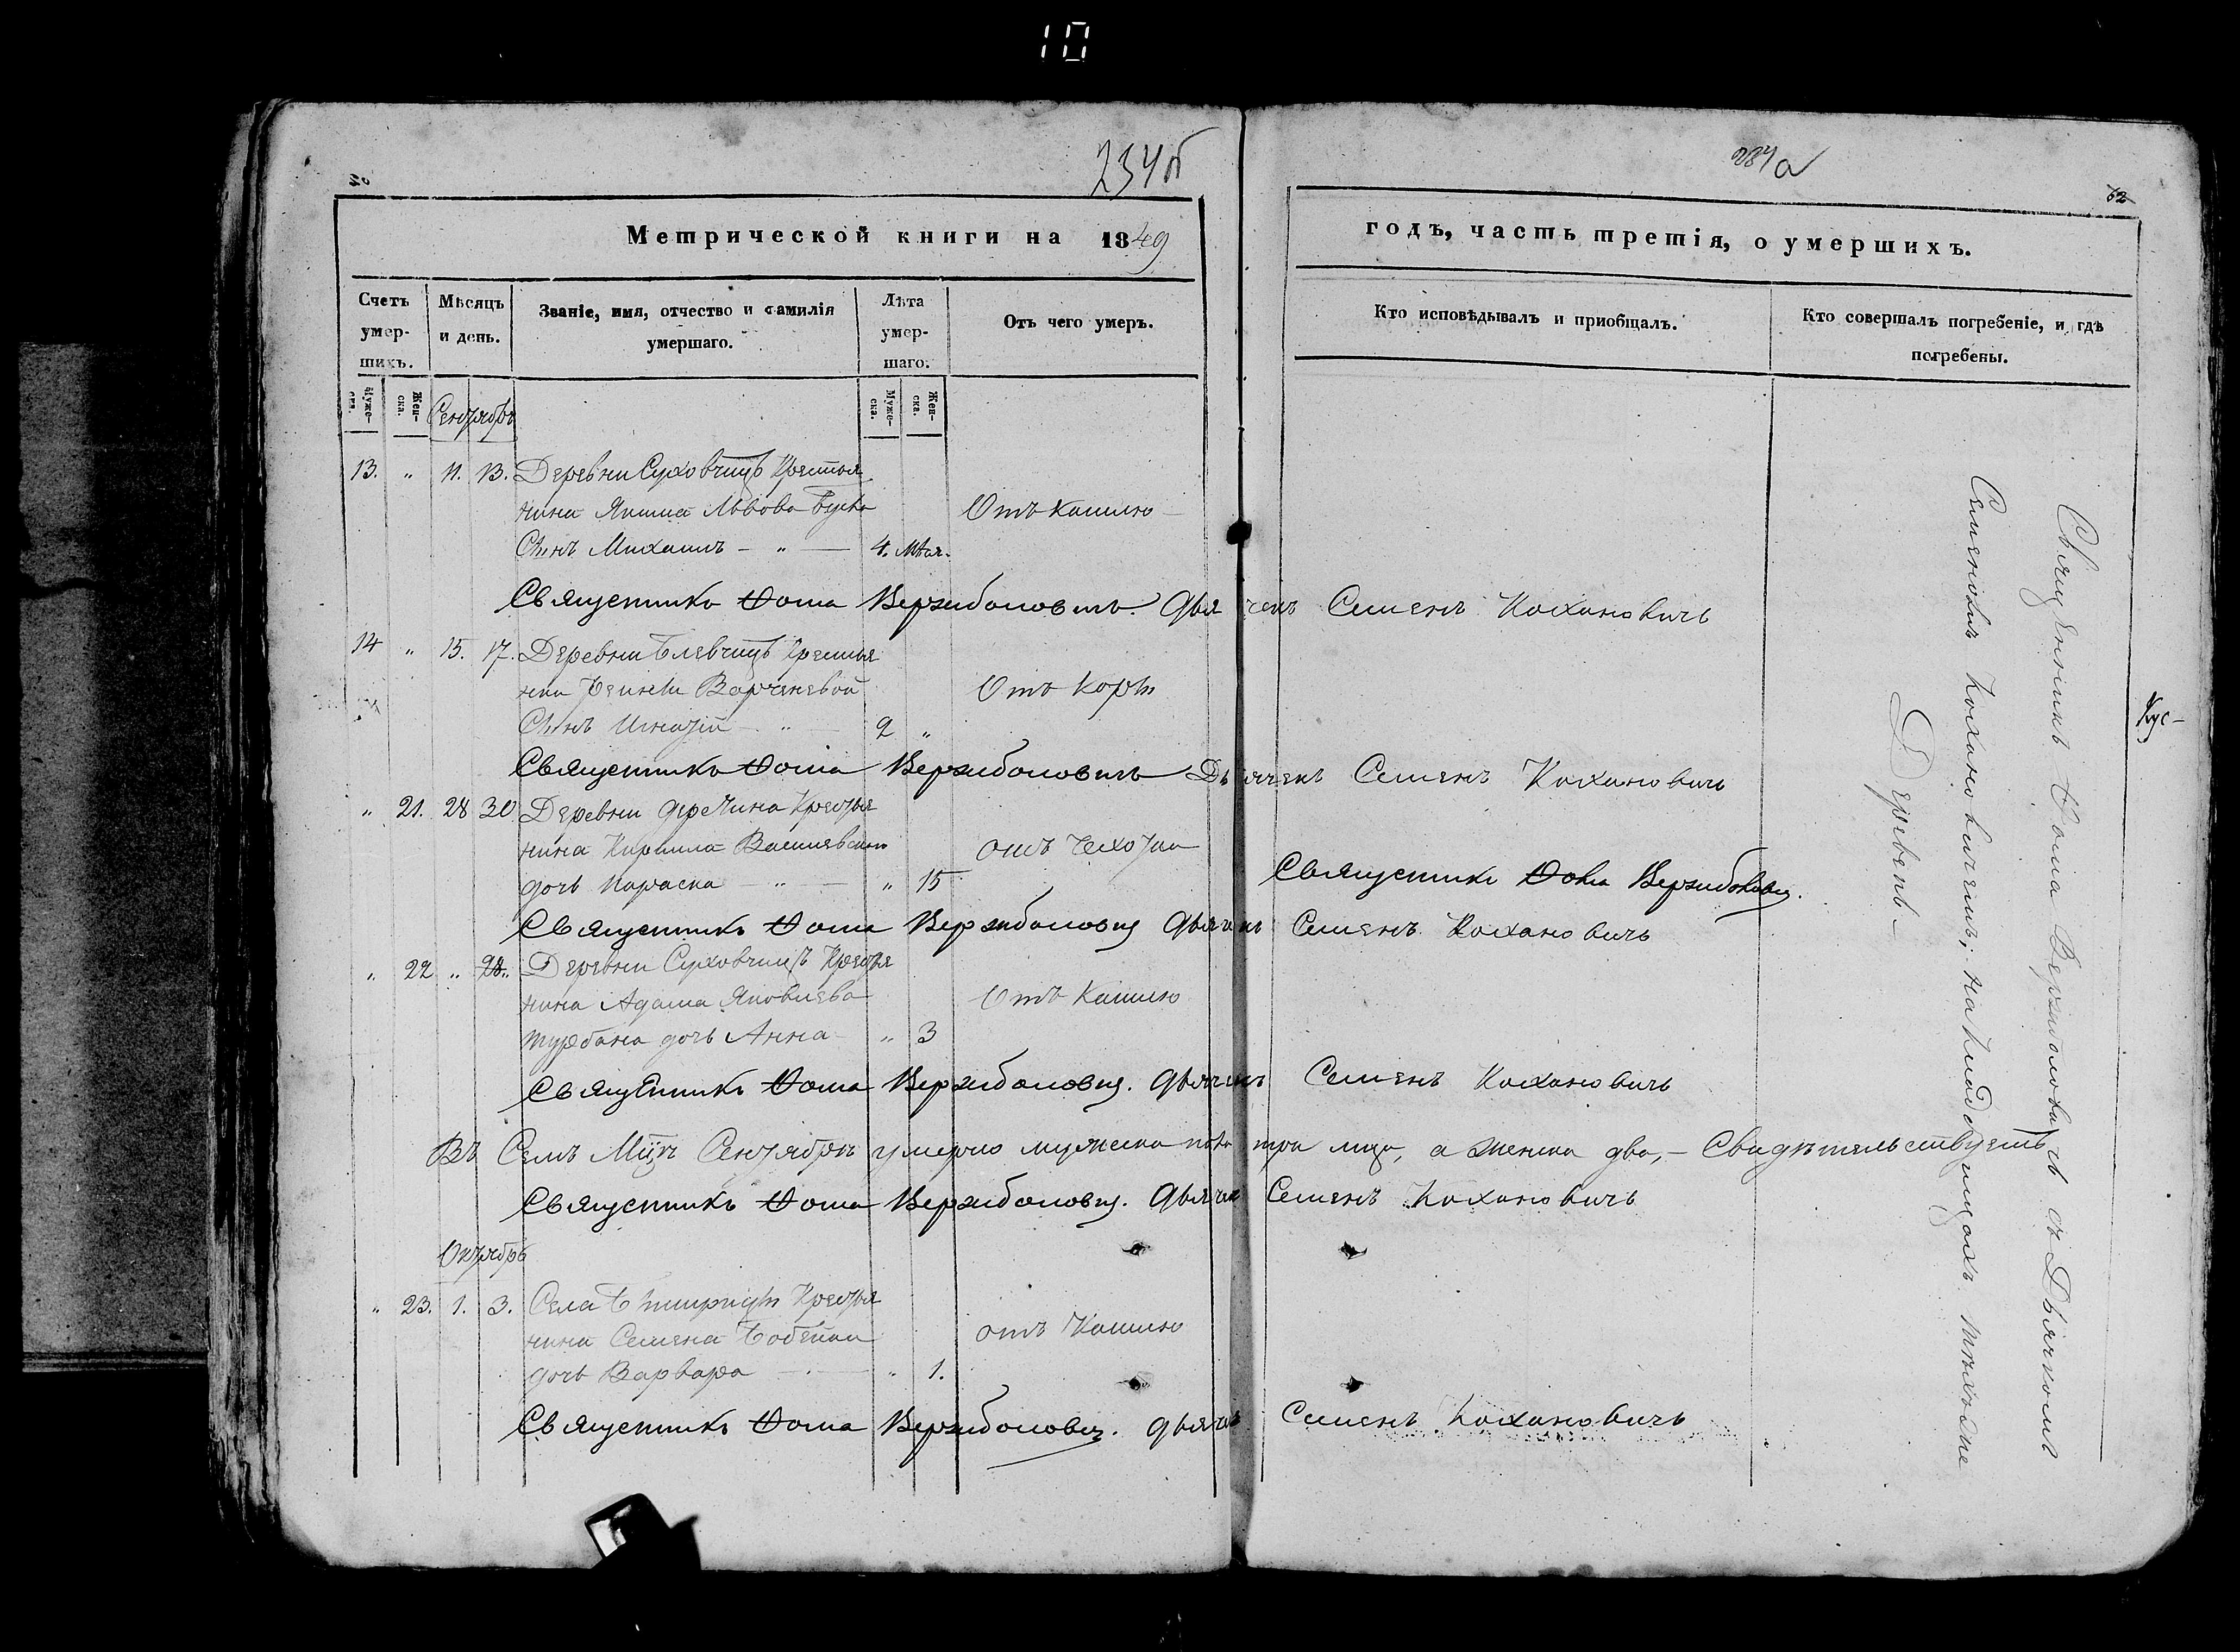 10
234б
234а
62
Метрической книги на 1849
годъ, часть третія, о умершихъ.
Счетъ умер-шихъ.
Мѣсяцъ и день.
Званіе, имя, отчество и фамилія умершаго.
Лѣта умер-шаго.
Отъ чего умеръ.
Кто исповѣдывалъ и приобщалъ.
Кто совершалъ погребеніе, и гдѣ погребены.
Муже-ска.
Жен-ска.
Муже-ска.
Жен-ска.
Сентябрь
13. " 11. 13. Деревни Суховчицъ Крестья
нина Якима Львова
Отъ Кашлю
Сынъ Михаилъ - " - 4. мѣся.
Священникъ Фома Вержболовичъ. Дьячекъ Семенъ Кохановичъ
14 " 15. 17. Деревни Крестья
Отъ Кори
Сынъ Игнатій - " - 2 "
Священникъ Фома Вержболовичъ Дьячекъ Семенъ Кохановичъ
" 21. 28 30 Деревни Крестья
нина Кирилла
отъ чехотки
дочь Параска - " - " 15
Священникъ Фома Вержболович.
Священникъ Фома Вержболович Дьячекъ Семенъ Кохановичъ
" 22 " 28. Деревни Суховчицъ Крестья
нина Адама Яковлева
Отъ Кашлю
Турбана дочь Анна - " 3
Священникъ Фома Вержболович. Дьячекъ Семенъ Кохановичъ
Въ Семъ Мцѣ Сентябрѣ умерло мужеска пола три лица, а женска два, - Свидѣтельствуетъ
Священникъ Фома Вержболович. Дьячек Семенъ Кохановичъ
Октябрь
" 23. 1. 3. Села Крестья
нина Семена
отъ Кашлю
дочь Варвара - " 1.
Священникъ Фома Вержболович. Дьячекъ Семенъ Кохановичъ
Священникъ Фома Вержболовичъ съ Дьячкомъ
Семеномъ Кохановичемъ; на кладбищахъ тѣхъ же
Деревень -